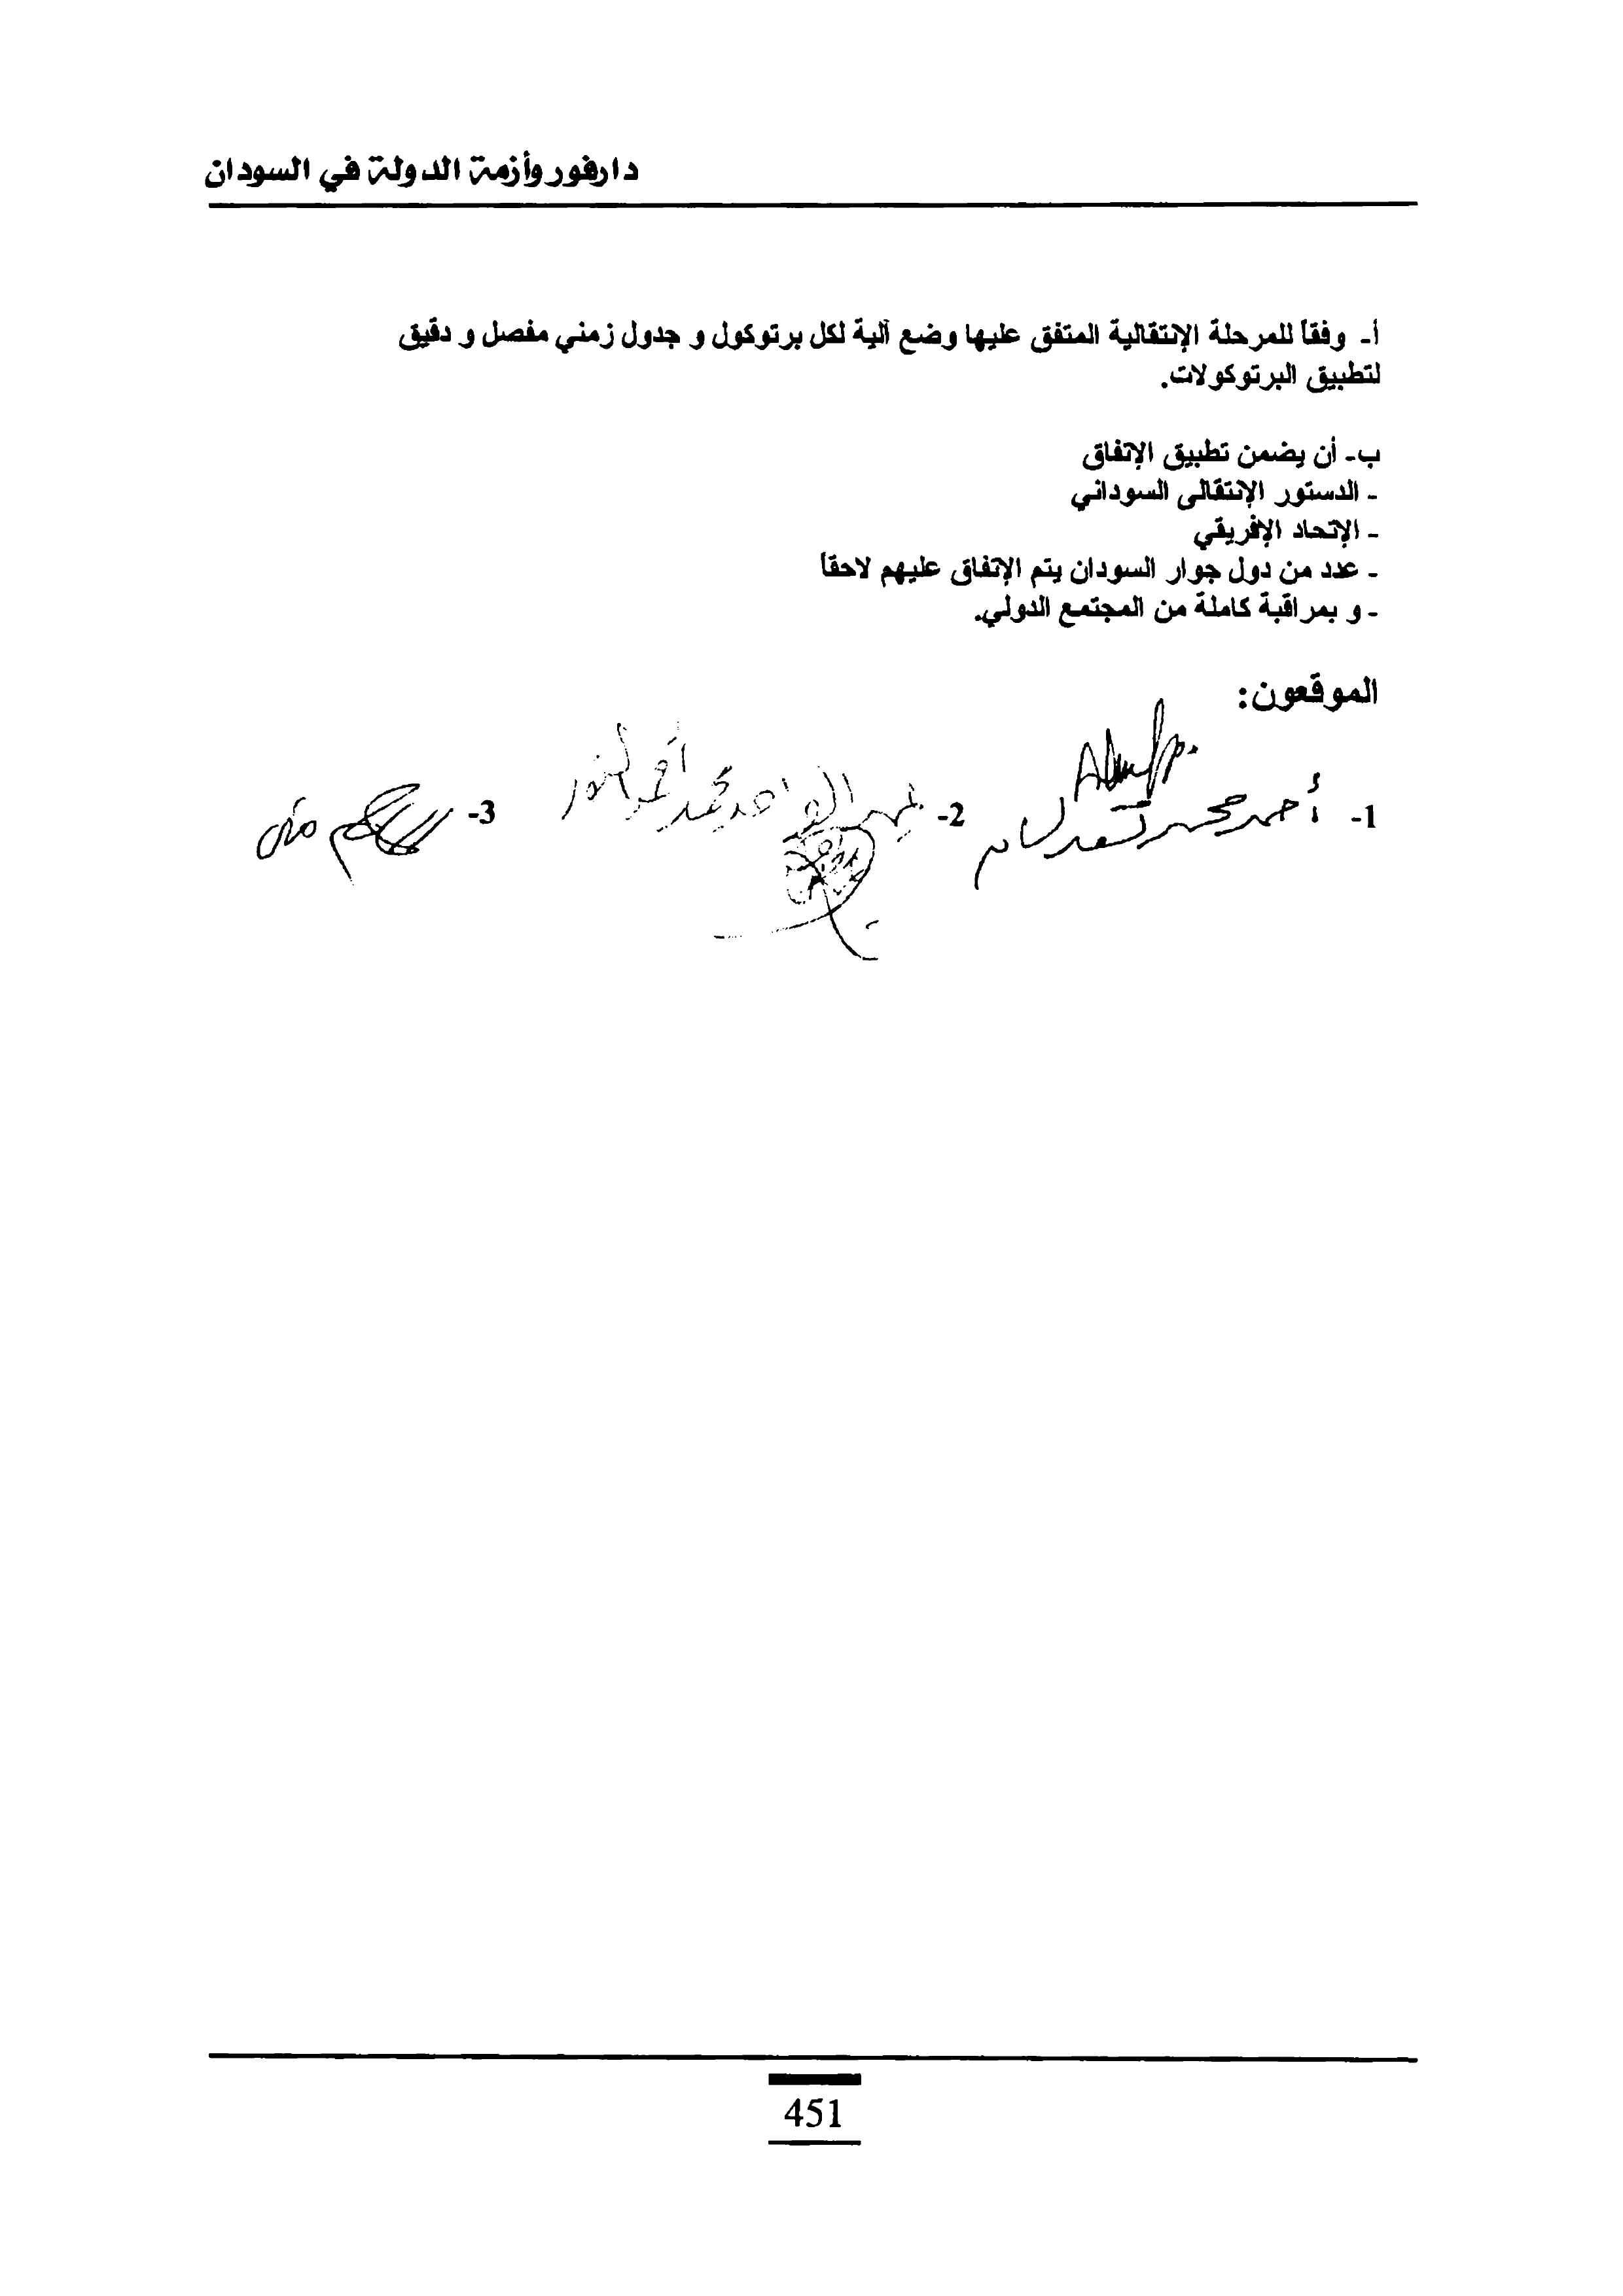 دارفور وأزمة الدولة في السودان
أ- وفقاً للمرحلة الإنتقالية المتفق عليها وضع آلية لكل برتوكول و جدول زمني مفصل و دقيق
لتطبيق البرتوكولات.
ب- أن يضمن تطبيق الإتفاق
- الدستور الإنتقالى السوداني
- الإتحاد الإفريقي
- عدد من دول جوار السودان يتم الإتفاق عليهم لاحقاً
- و بمراقبة كاملة من المجتمع الدولي.
الموقعون:
1- أحمد محمد 2- عبد الواحد محمد أحمد النور 3-
451